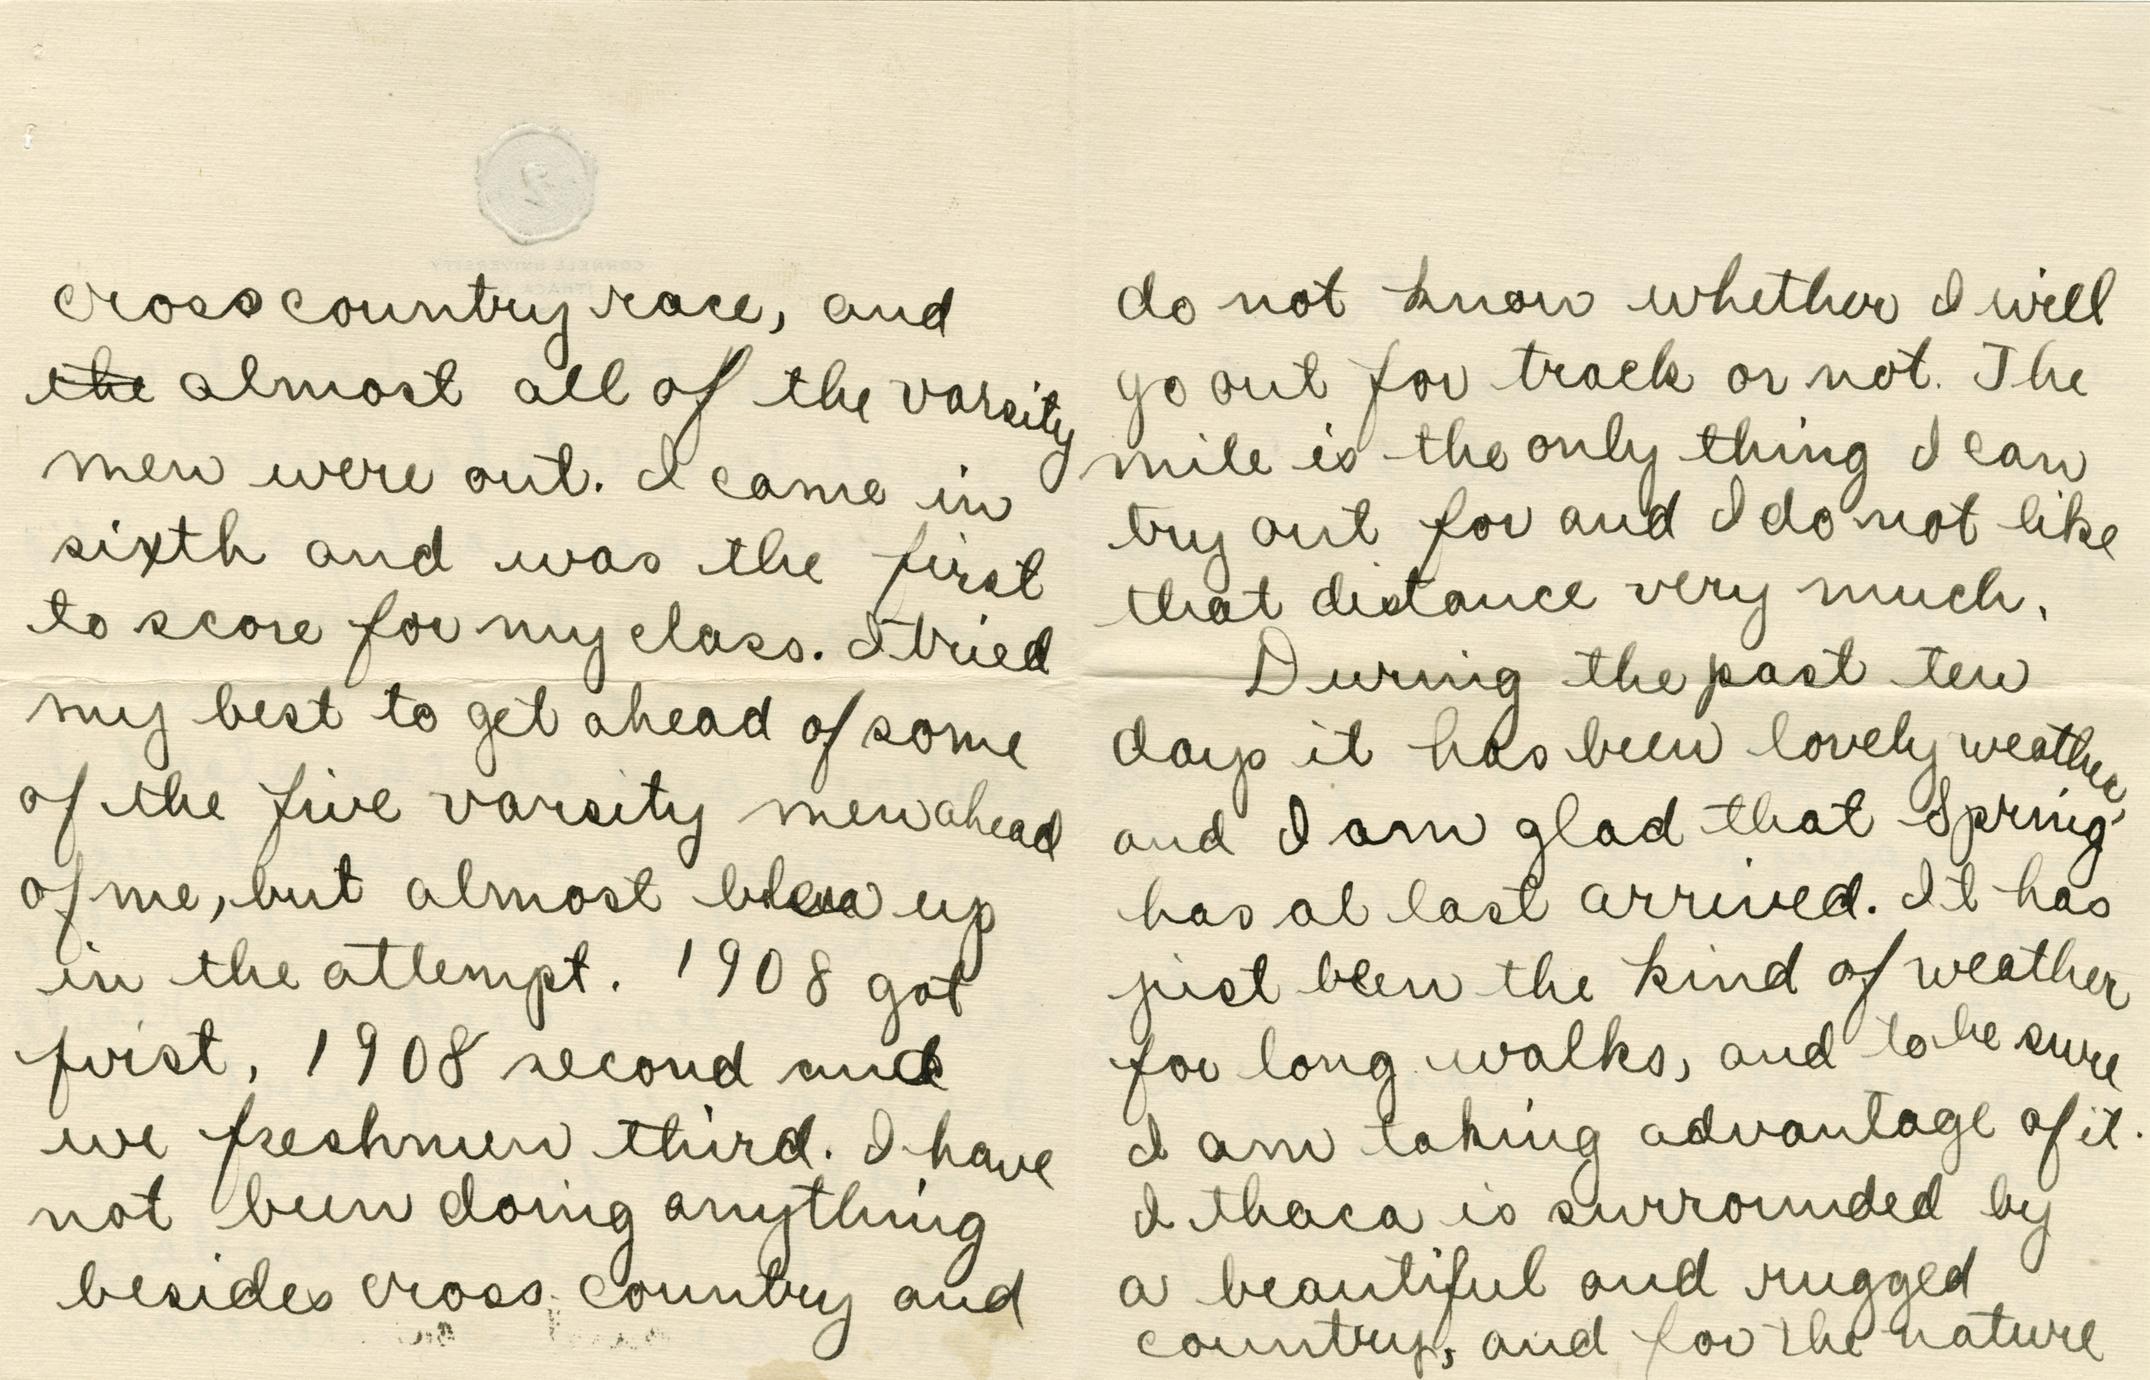 CORNELL UNIVERSITY
ITHACA
crosscountry race, and
the almost all of the varsity
men were out. I came in
sixth and was the first
to score for my class. I tried
my best to get ahead of some
of the five varsity men ahead
of me, but almost blew up
in the attempt. 1908 got
first, 1908 second and
we freshmen third. I have
not been doing anything
besides cross country and
do not know whether I will
go out for track or not. The
mile is the only thing I can
try out for and I do not like
that distance very much.
During the past ten
days it has been lovely weather,
and I am glad that Spring
has at last arrived. It has
just been the kind of weather
for long walks, and to be sure
I am taking advantage of it.
Ithaca is surrounded by
a beautiful and rugged
country, and for the nature